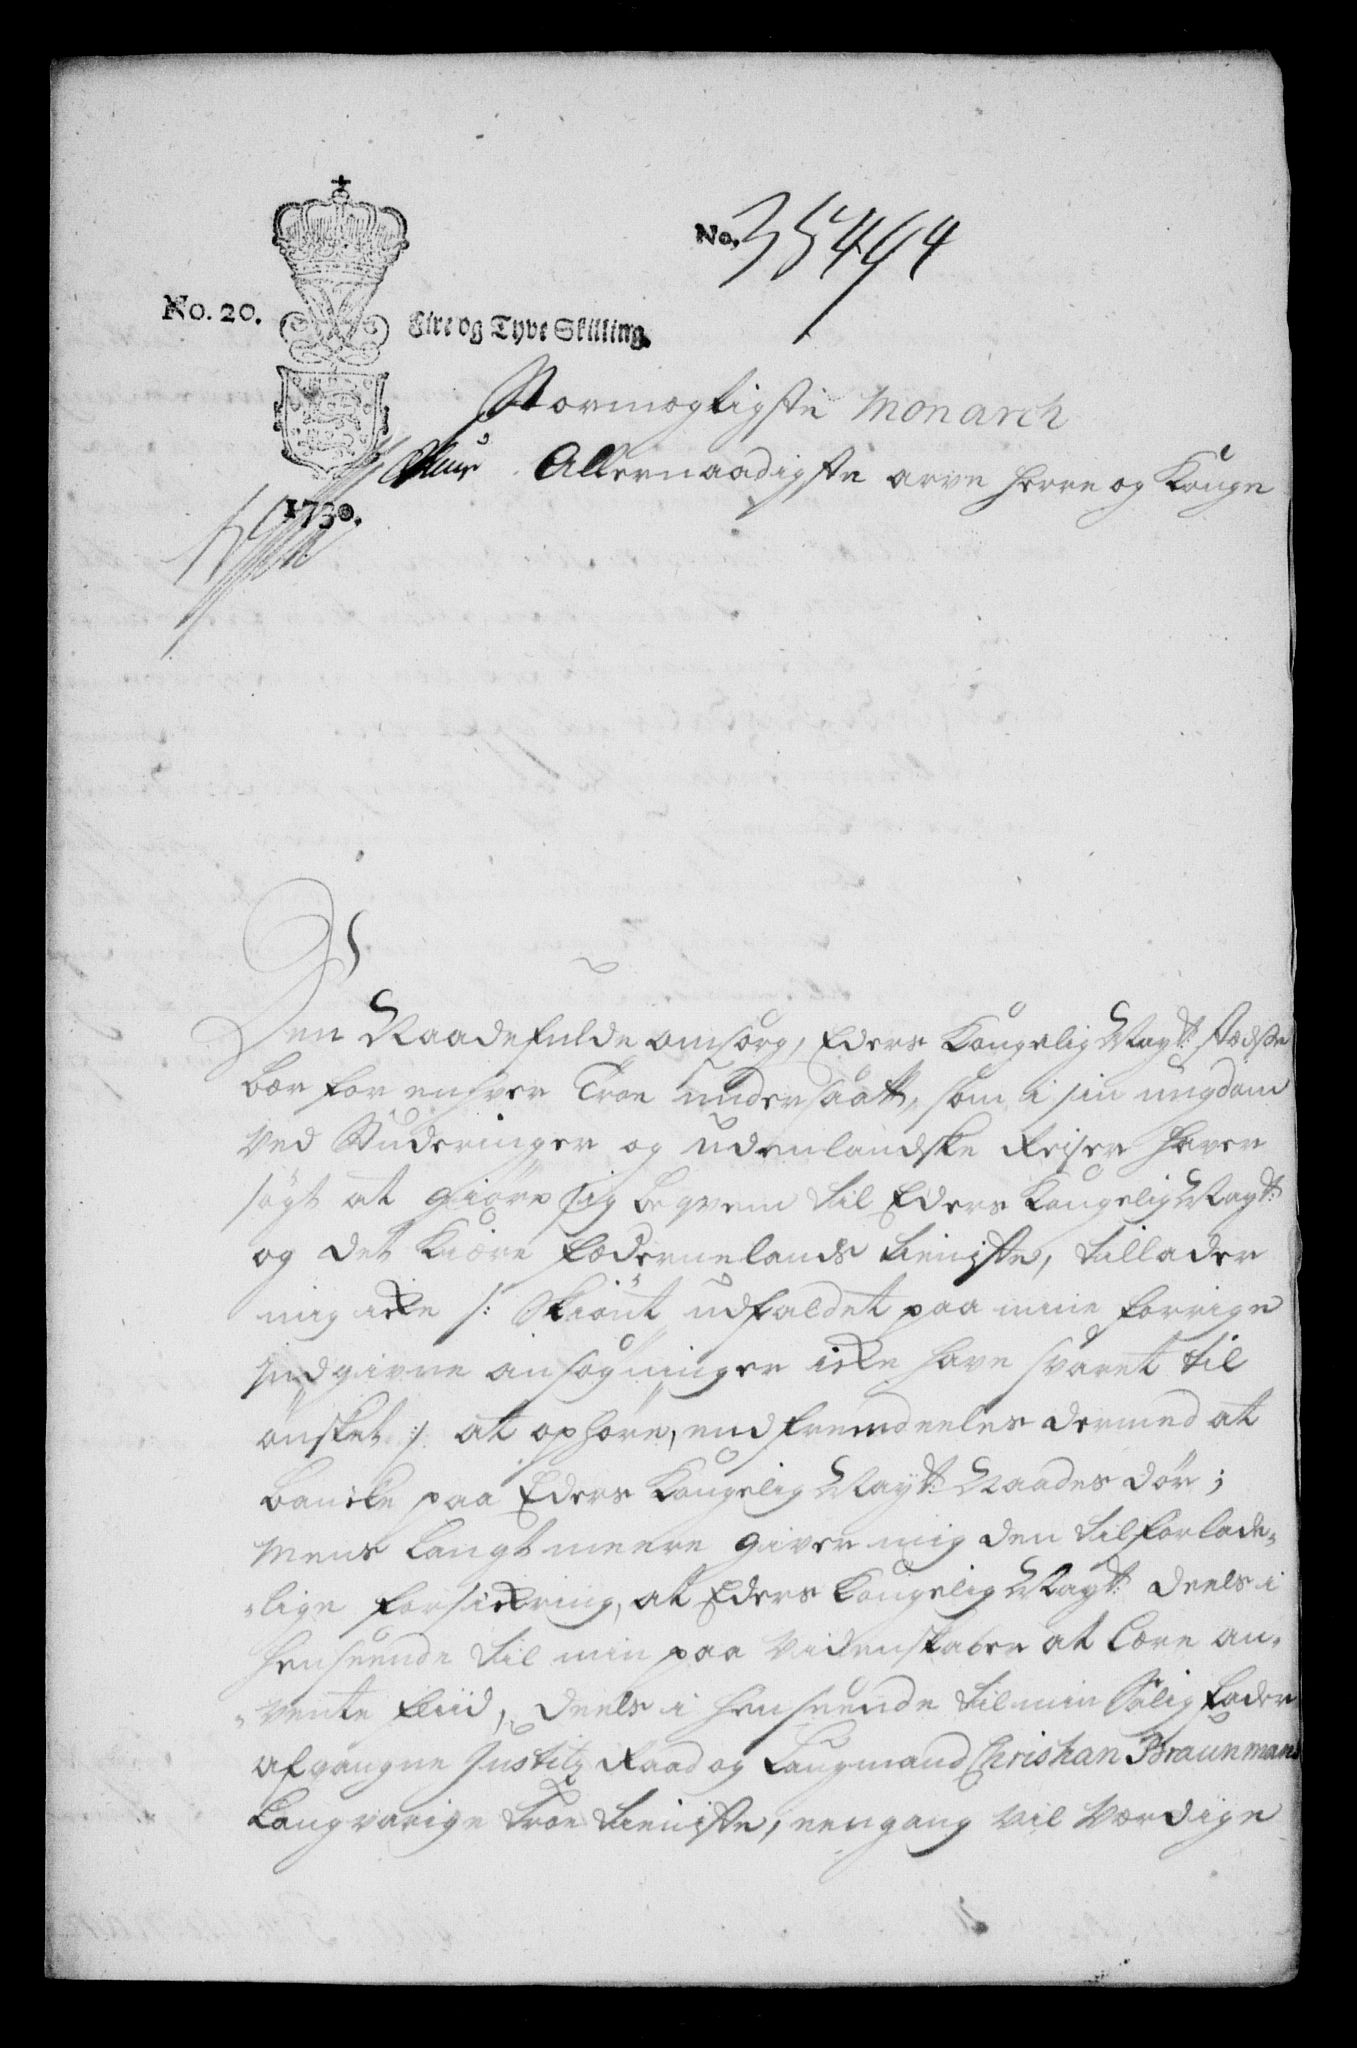 No. 35494
No. 20.
Fire og Tyve Skilling.
Stormægtigste Monarch
Allernaadigste arve Herre og Konge
1730.
Den Naadefulde omsorg, Eders Kongelig Mayt: stedse
bær for enhver Troe undersaatt, som i sin ungdom
ved Studeringer og udenlandske Reiser haver
søgt at giøre sig beqvem til Eders Kongelig Mayt:
og det kiære fædernelands tieniste, tillader
mig icke /: Skiønt udfaldet paa mine forrige
indgivne ansøgninger icke have svaret til
ønsket :/ at ophøre, end fremdeeles dermed at
bancke paa Eders Kongelig Mayt: Naades dør;
Mens langt meere giver mig den tilforlade-
-lige forsickring, at Eders Kongelig Mayt: deels i
henseende til min paa Videnskaber at lære an-
-vente fliid, deels i henseende til min Salig fader
afgangne Justitz Raad og Laugmand Christian Braunmans
langvarige troe tieniste, eengang vil værdige